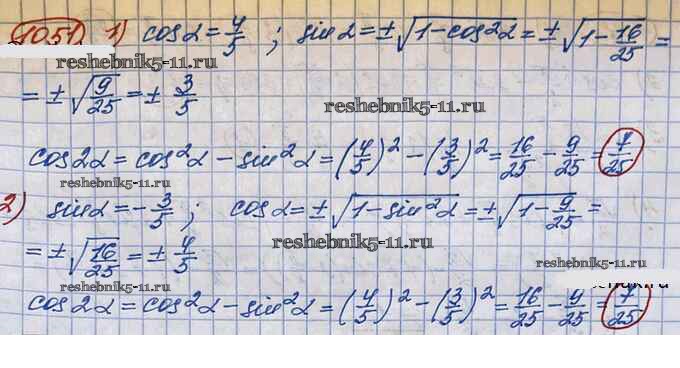 1051 1) cosα = 4/5 ; sinα = ±√(1−cos²α) = ±√(1−16/25) =
reshebnik5-11.ru
= ±√(9/25) = ± 3/5
reshebnik5-11.ru
cos2α = cos²α − sin²α = (4/5)² − (3/5)² = 16/25 − 9/25 = 7/25
reshebnik5-11.ru
2) sinα = −3/5 ; cosα = ±√(1−sin²α) = ±√(1−9/25) =
reshebnik5-11.ru
= ±√(16/25) = ± 4/5
reshebnik5-11.ru
reshebnik5-11.ru
cos2α = cos²α − sin²α = (4/5)² − (3/5)² = 16/25 − 9/25 = 7/25